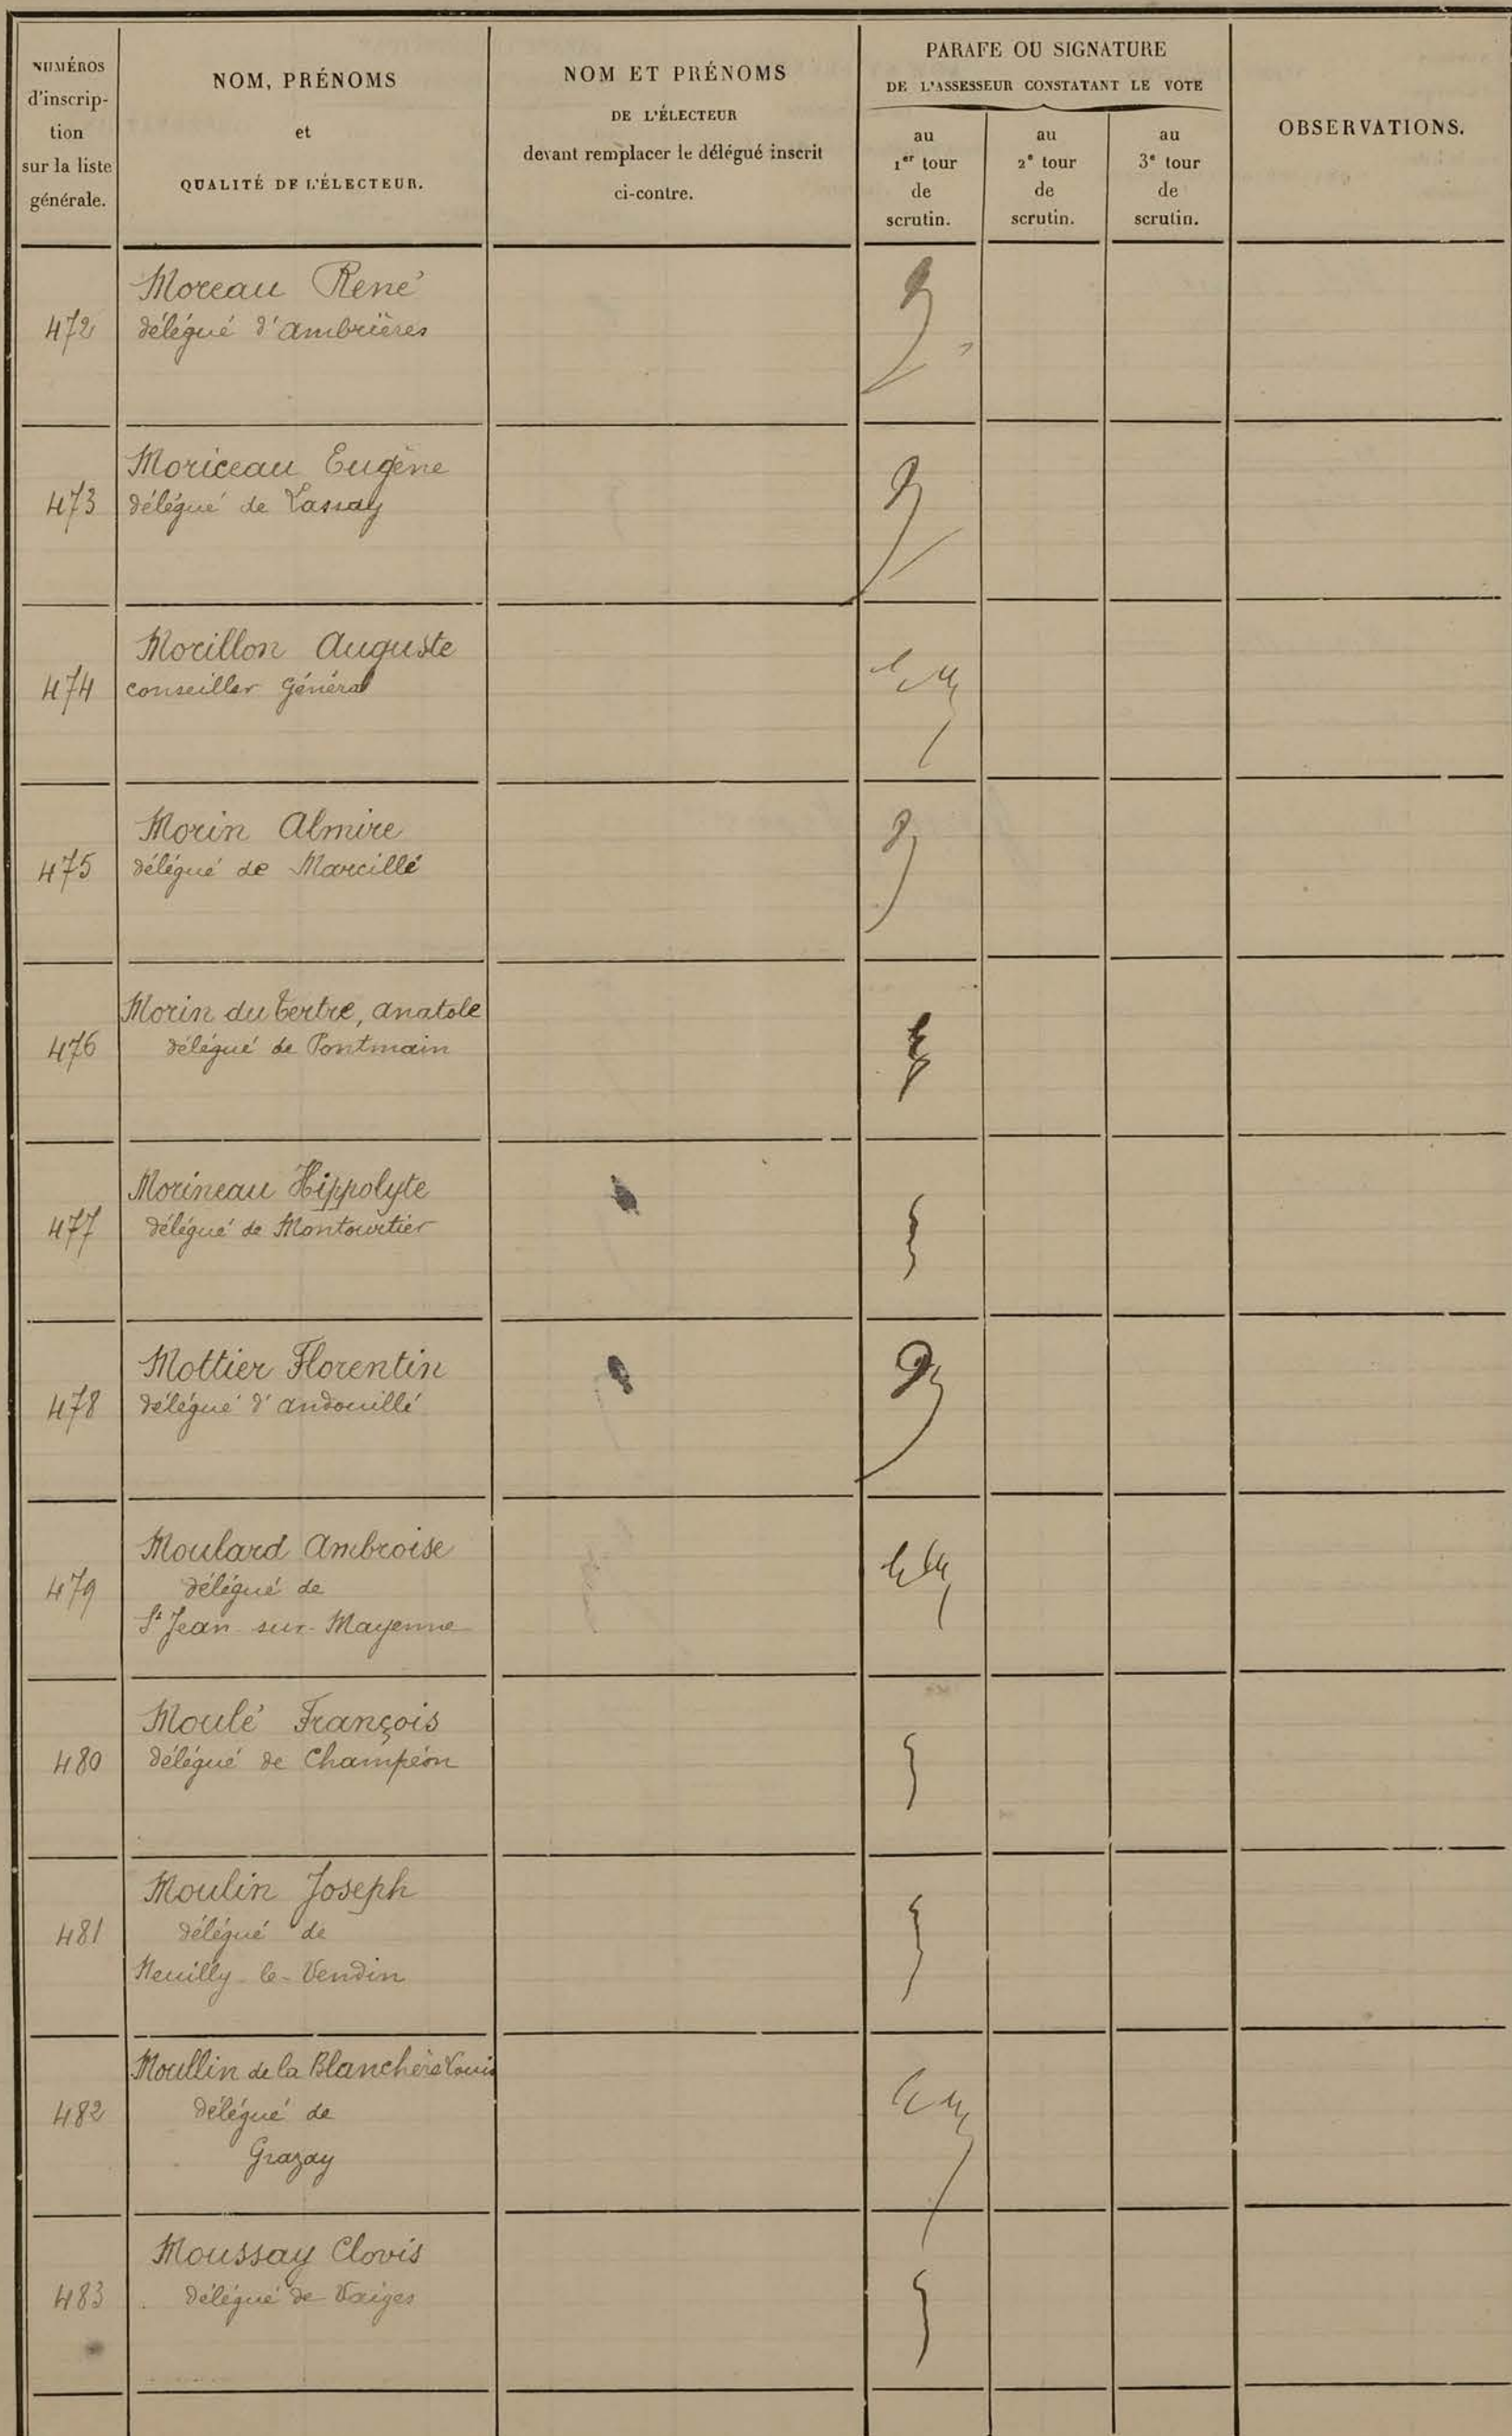 NUMÉROS
d'inscrip-
tion
sur la liste
générale.
NOM, PRÉNOMS
et
QUALITÉ DE L'ÉLECTEUR.
NOM ET PRÉNOMS
DE L'ÉLECTEUR
devant remplacer le délégué inscrit
ci-contre.
PARAFE OU SIGNATURE
DE L'ASSESSEUR CONSTATANT LE VOTE
au
1er tour
de
scrutin.
au
2e tour
de
scrutin.
au
3e tour
de
scrutin.
OBSERVATIONS.
Moreau René
472 délégué d'Ambrières
Moriceau Eugène
473 délégué de Lassay
Morillon Auguste
474 conseiller Général
Morin Almire
475 délégué de Marcillé
Morin du Tertre, Anatole
476 délégué de Pontmain
Morineau Hippolyte
477 délégué de Montourtier
Mottier Florentin
478 délégué d'Andouillé
Moulard Ambroise
479 délégué de
St Jean-sur-Mayenne
Moulé François
480 délégué de Champéon
Moulin Joseph
481 délégué de
Neuilly-le-Vendin
Moullin de la Blanchère Louis
482 délégué de
Grazay
Moussay Clovis
483 délégué de Vaiges